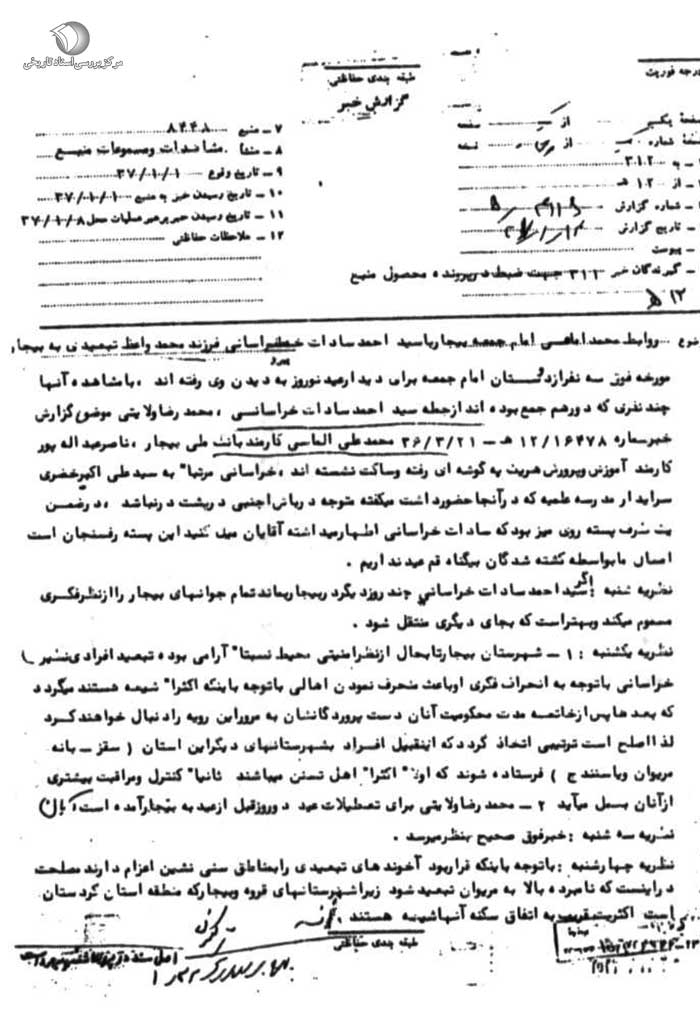 مرکز بررسی اسناد تاریخی
طبقه بندی حفاظتی
گزارش خبر
درجه فوریت
صفحهٔ یکم از صفحه
شماره از نسخه
به ۳۱۲
از ۱۲ هـ
شماره گزارش
تاریخ گزارش
پیوست
گیرندگان خبر ۳۱۱ جهت ضبط در پرونده محصول منبع
۱۲ هـ
۷ ــ منبع ۸۴۴۸
۸ ــ منشأ مشاهدات و مسموعات منبع
۹ ــ تاریخ وقوع ۳۷/۰۱/۰۱
۱۰ ــ تاریخ رسیدن خبر به منبع ۳۷/۰۱/۰۱
۱۱ ــ تاریخ رسیدن خبر برهبر عملیات محل ۳۷/۰۱/۰۸
۱۲ ــ ملاحظات حفاظتی
روابط محمد امامی امام جمعه بیجار با سید احمد سادات خراسانی فرزند محمد واعظ تبعیدی به بیجار
پیرو
مورخه فوق سه نفر از دوستان امام جمعه برای دیدار عید نوروز به دیدن وی رفته اند ، با مشاهده آنها
چند نفری که دور هم جمع بوده اند از جمله سید احمد سادات خراسانی ، محمد رضا ولایتی موضوع گزارش
خبر شماره ۱۲/۱۶۴۷۸ هـ ــ ۳۶/۳/۲۱ محمد علی الماسی کارمند بانک ملی بیجار ، ناصر عبداله پور
کارمند آموزش و پرورش هریک به گوشه ای رفته و ساکت نشسته اند ، خراسانی مرتباً به سید علی اکبر خضری
سرایدار مدرسه علمیه که در آنجا حضور داشت میگفته متوجه در باش اجنبی در پشت در نباشد ، در ضمن
یک ظرف پسته روی میز بود که سادات خراسانی اظهار میداشته آقایان میل کنید این پسته رفسنجان است
امسال ما بواسطه کشته شدگان بیگناه قم عید نداریم .
نظریه شنبه : اگر سید احمد سادات خراسانی چند روز دیگر در بیجار بماند تمام جوانهای بیجار را از نظر فکری
مسموم میکند و بهتر است که بجای دیگری منتقل شود .
نظریه یکشنبه : ۱ ــ شهرستان بیجار تا بحال از نظر امنیتی محیط نسبتاً آرامی بوده تبعید افرادی نظیر (
خراسانی با توجه به انحراف فکری او باعث منحرف نمودن اهالی با توجه باینکه اکثراً شیعه هستند میگردد
که بعدها پس از خاتمه مدت محکومیت آنان دست پروردگانشان به مرور این رویه را دنبال خواهند کرد
لذا اصلح است ترتیبی اتخاذ گردد که اینقبیل افراد بشهرستانهای دیگر این استان ( سقز ــ بانه
مریوان و یا سنندج ) فرستاده شوند که اولاً اکثراً اهل تسنن میباشند ثانیاً کنترل و مراقبت بیشتری
از آنان بعمل میآید ۲ ــ محمد رضا ولایتی برای تعطیلات عید دو روز قبل از عید به بیجار آمده است
نظریه سه شنبه : خبر فوق صحیح بنظر میرسد .
نظریه چهارشنبه : با توجه باینکه قرار بود آخوندهای تبعیدی را بمناطق سنی نشین اعزام دارند مصلحت
در اینست که نامبرده بالا به مریوان تبعید شود زیرا شهرستانهای قروه و بیجار که منطقه استان کردستان
است اکثریت قریب به اتفاق سکنه آنها شیعه هستند .
طبقه بندی حفاظتی